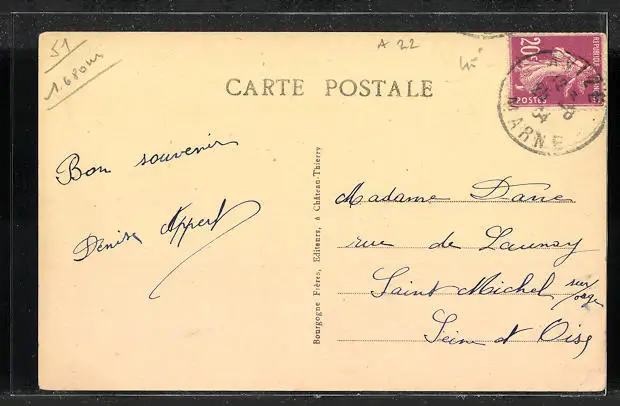 51
1.680m
A 22
CARTE POSTALE
REPUBLIQUE
20c
POSTES
MARNE
Bon souvenir
Denise Appert
Bourgogne Frères, Editeurs, à Château-Thierry
Madame
rue de Launay
Saint Michel sur
orge
Seine et Oise